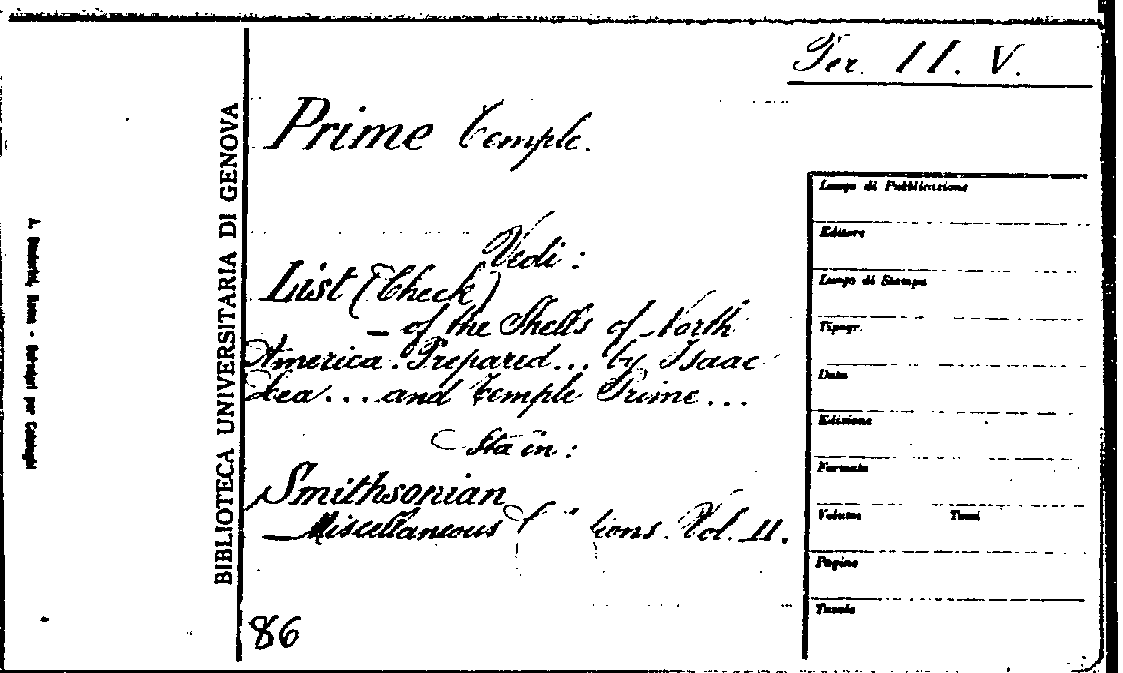 Per. II. V.
Prime Temple.
Vedi:
List (Check)
- of the Shells of North
America. Prepared... by Isaac
Lea... and Temple Prime...
Sta in:
Smithsonian
Miscellaneous tions. Vol. II.
86
BIBLIOTECA UNIVERSITARIA DI GENOVA
Luogo di Pubblicazione
Editore
Luogo di Stampa
Tipogr.
Data
Edizione
Formato
Volume Tomi
Pagine
Tavole